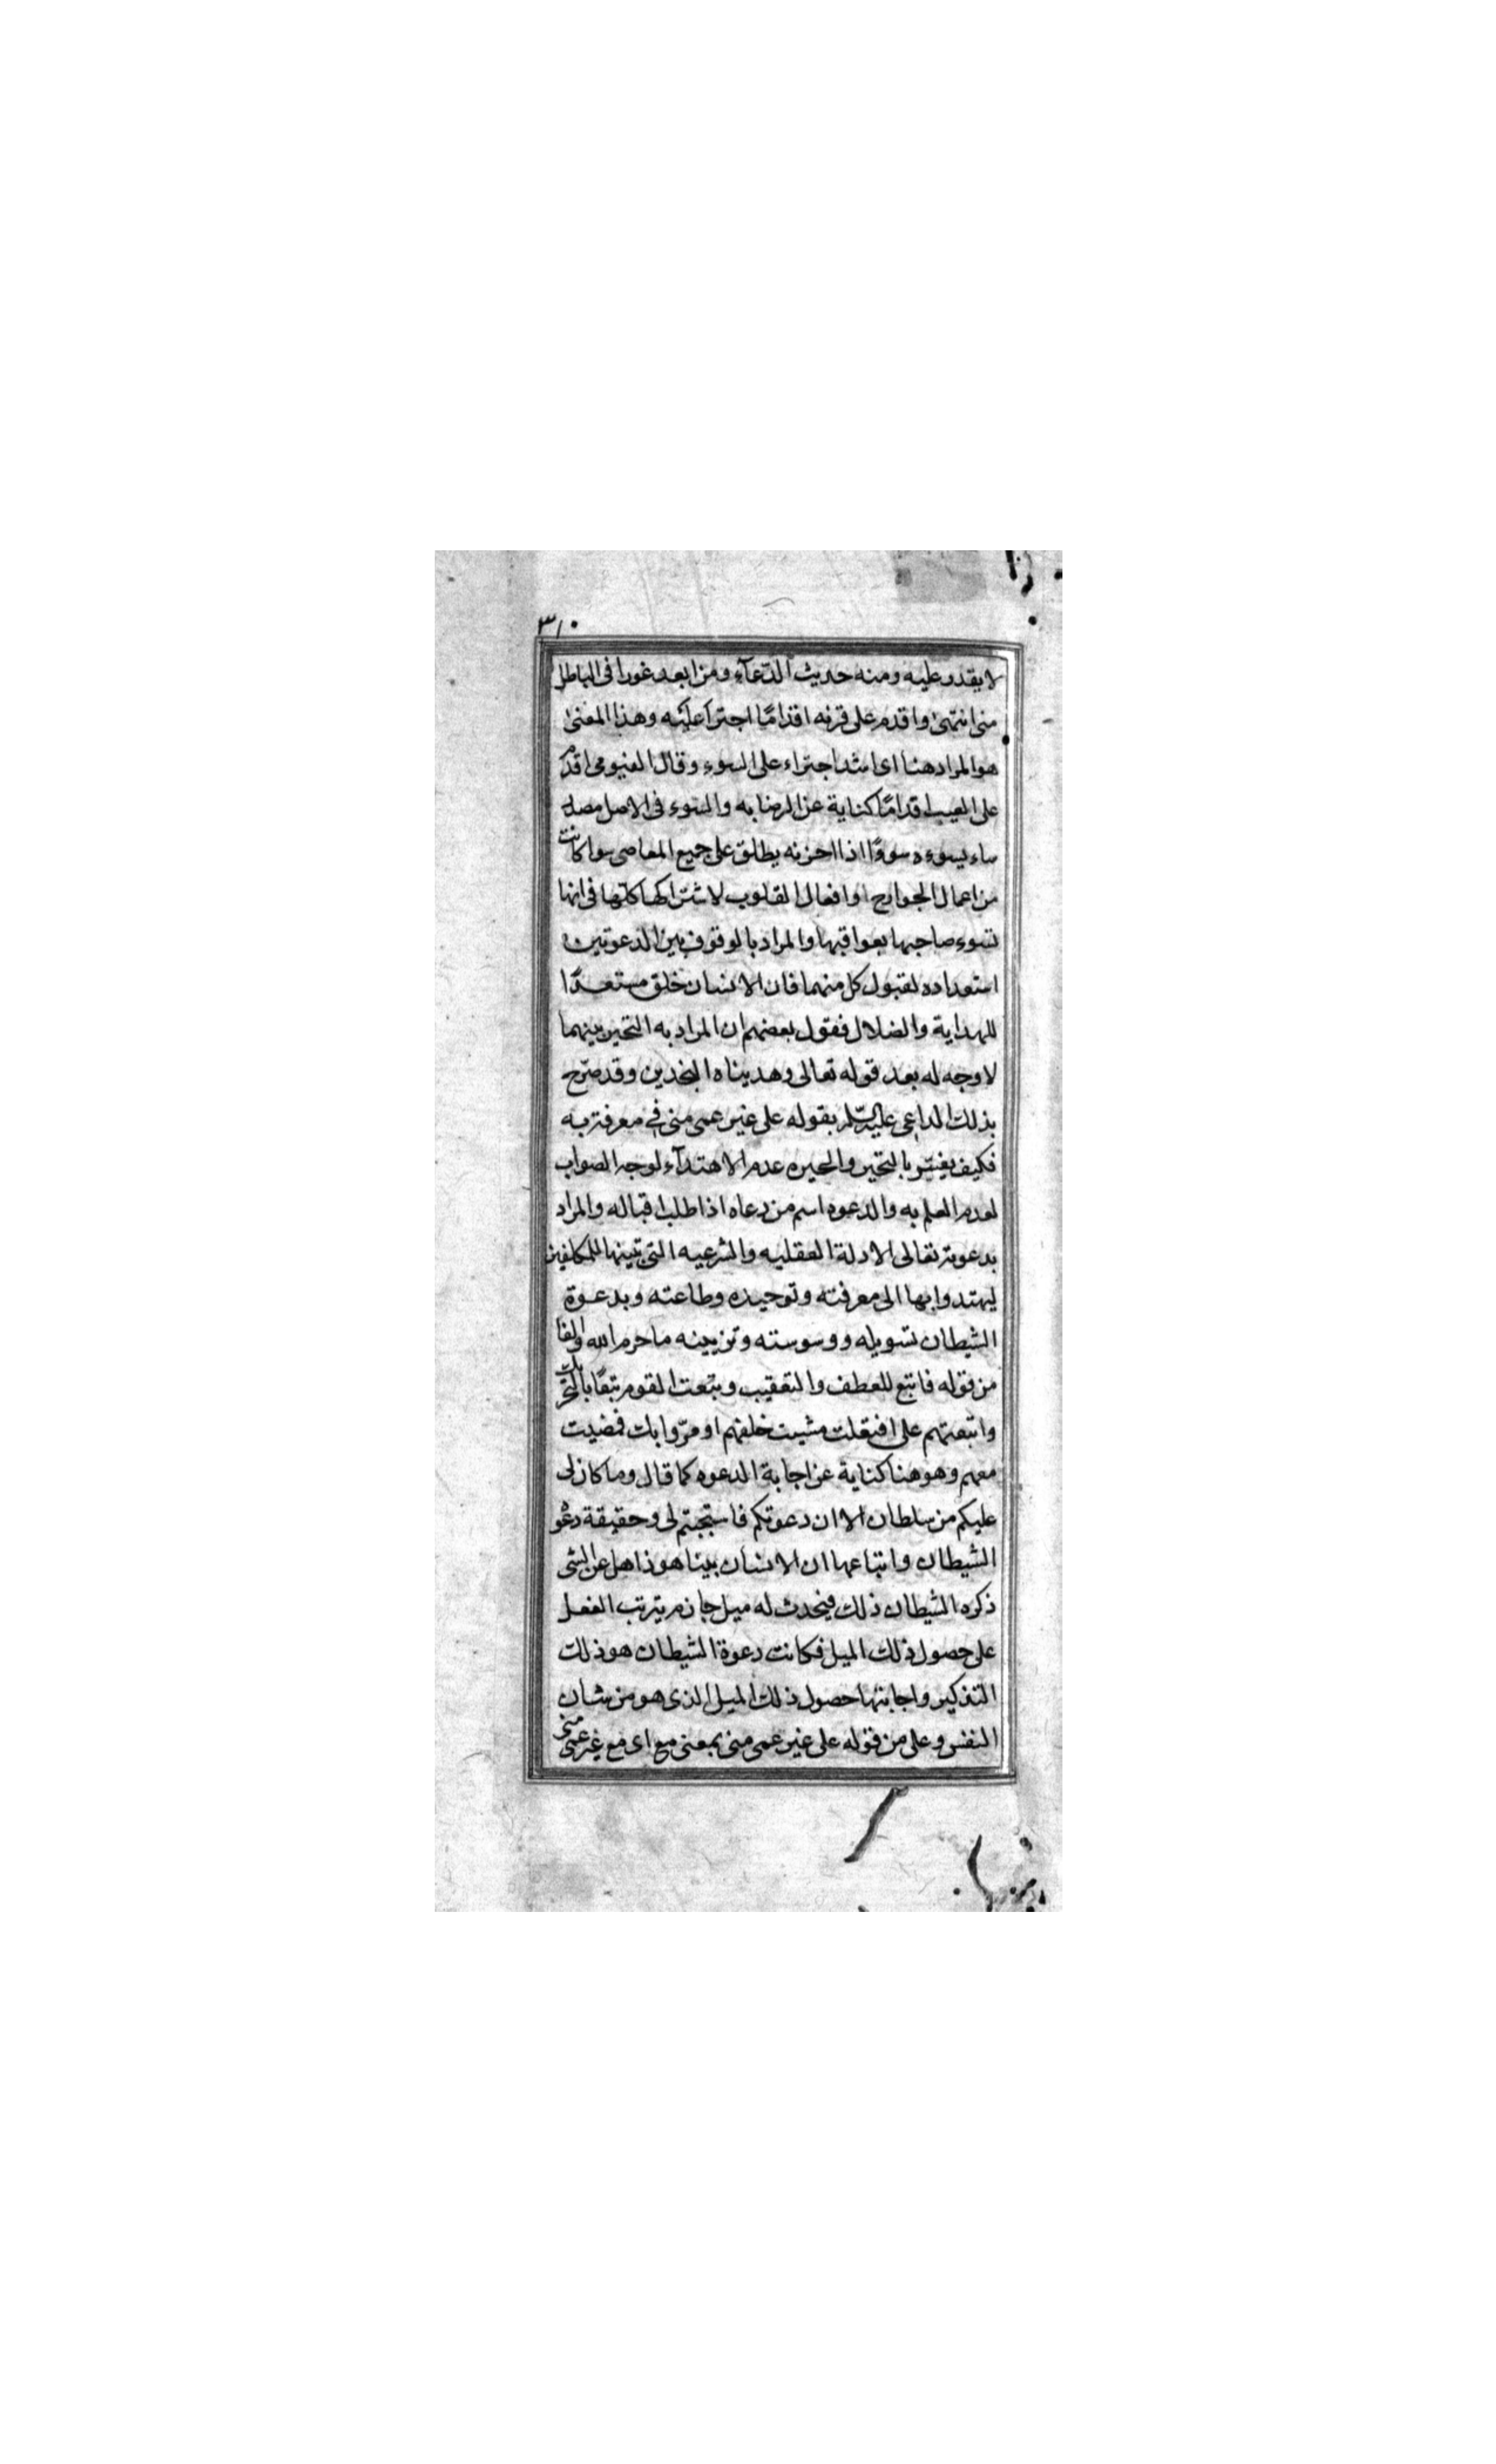 ٣١٠
لا يقدر عليه ومنه حديث الدّعآء ومن ابعد غورا فى الباطل
منى انتهىٰ واقدم على قرنه اقدامًا اجترأ عليه وهذا المعنىٰ
هو المراد هنا اى اشد اجتراء على السوء وقال الفيومى اقدم
على العيب اقدامًا كناية عن الرضا به والسوء فى الاصل مصدر
ساء يسوءه سوءًا اذا احزنه يطلق على جميع المعاصى سوا كانت
من اعمال الجوارح او افعال القلوب لاشتراكها كلها فى انها
تسوء صاحبها بعواقبها والمراد بالوقوف بين الدعوتين
استعداده لقبول كل منهما فان الانسان خلق مستعدًا
للهداية والضلال فقول بعضهم ان المراد به التحير بينهما
لا وجه له بعد قوله تعالى وهديناه النجدين وقد صرّح
بذلك الداعى عليه السّلم بقوله على غير عمى منى فى معرفة به
فكيف يفسّر بالتحير والحيره عدم الاهتدآء لوجه الصواب
لعدم العلم به والدعوه اسم من دعاه اذا طلب اقباله والمراد
بدعوته تعالى الادلة العقليه والشرعيه التى بيّنها للمكلفين
ليهتدوا بها الى معرفته وتوحيده وطاعته وبدعوة
الشيطان تسويله ووسوسته وتزيينه ما حرم الله والفا
من قوله فاتبع للعطف والتعقيب وتبعت القوم تبعًا بالتحريك
واتبعتهم على افتعلت مشيت خلفهم او مرّوا بك فمضيت
معهم وهو هنا كناية عن اجابة الدعوه كما قال وما كان لى
عليكم من سلطان الا ان دعوتكم فاستجبتم لى وحقيقة دعوة
الشيطان واتباعها ان الانسان بينا هو ذاهل عن الشى
ذكره الشيطان ذلك فيحدث له ميل جازم يترتب الفعل
على حصول ذلك الميل فكانت دعوة الشيطان هو ذلك
التذكير واجابتها حصول ذلك الميل الذى هو من شان
النفس وعلى من قوله على غير عمى منى بمعنى مع اى مع غير عمى منى